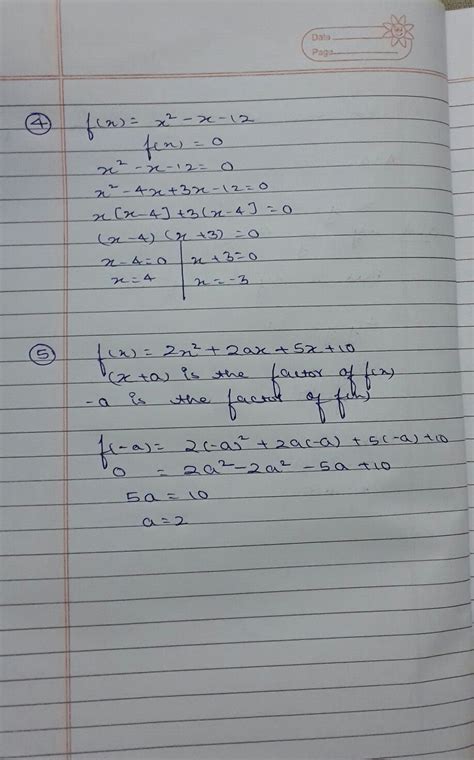 Date
Page
④ f(x) = x² - x - 12
f(x) = 0
x² - x - 12 = 0
x² - 4x + 3x - 12 = 0
x [x - 4] + 3 (x - 4] = 0
(x - 4) (x + 3) = 0
x - 4 = 0 | x + 3 = 0
x = 4 | x = -3
⑤ f(x) = 2x² + 2ax + 5x + 10
(x + a) is the factor of f(x)
-a is the factor of f(x)
f(-a) = 2(-a)² + 2a(-a) + 5(-a) + 10
0 = 2a² - 2a² - 5a + 10
5a = 10
a = 2